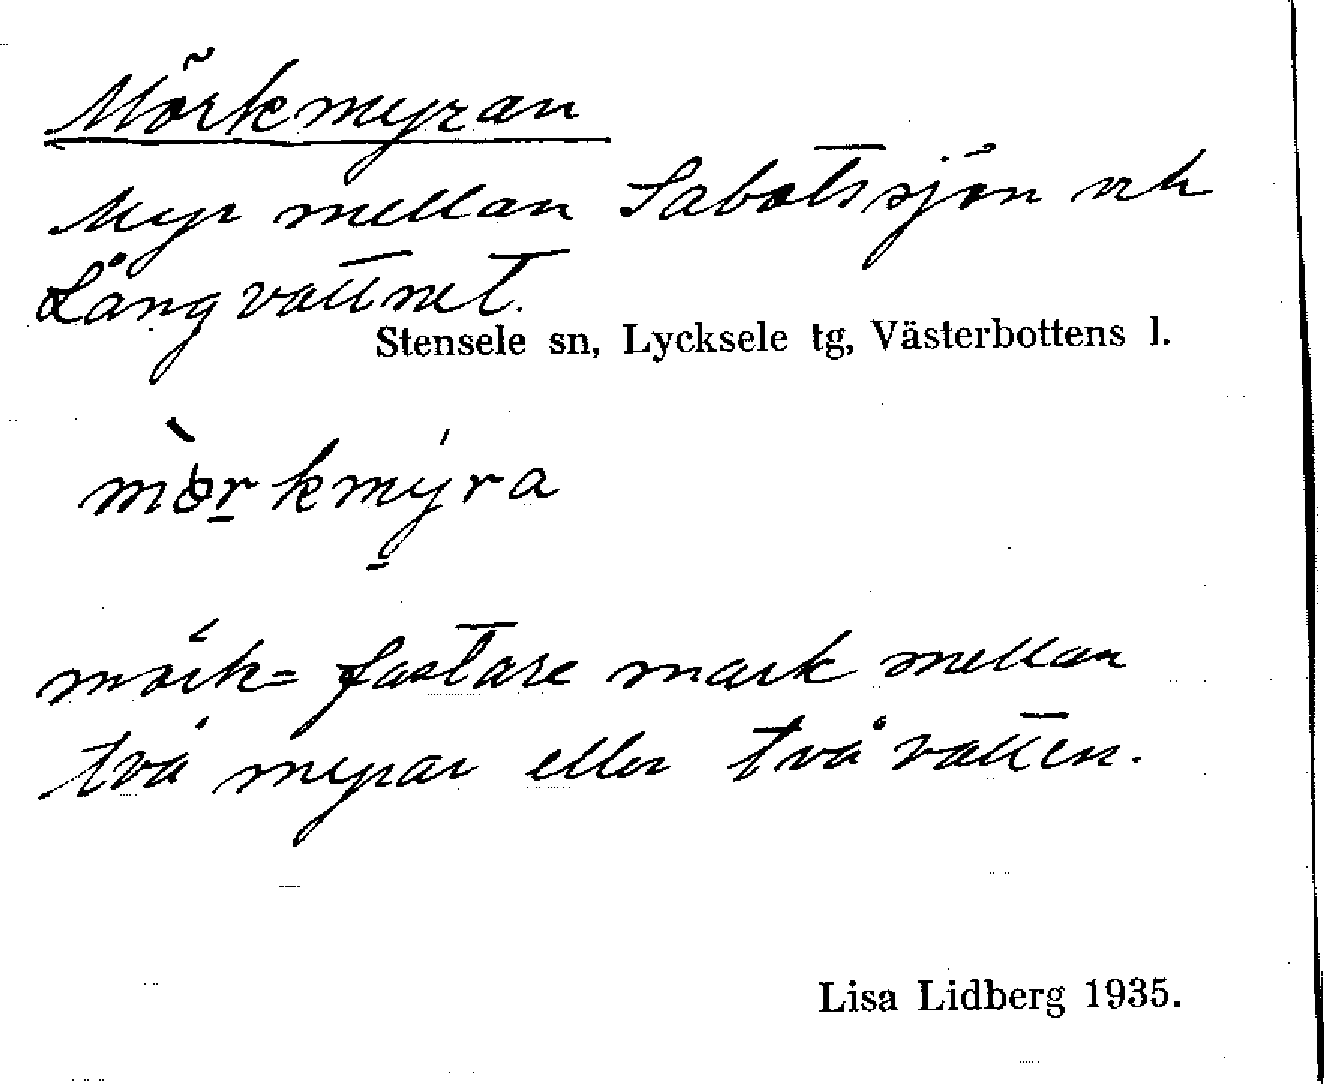 Mörkmyran
Myr mellan Sabotssjön och
Långvattnet.
Stensele sn, Lycksele tg, Västerbottens l.
mòrkmýra
mörk= fastare mark mellan
två myrar eller två vatten.
Lisa Lidberg 1935.